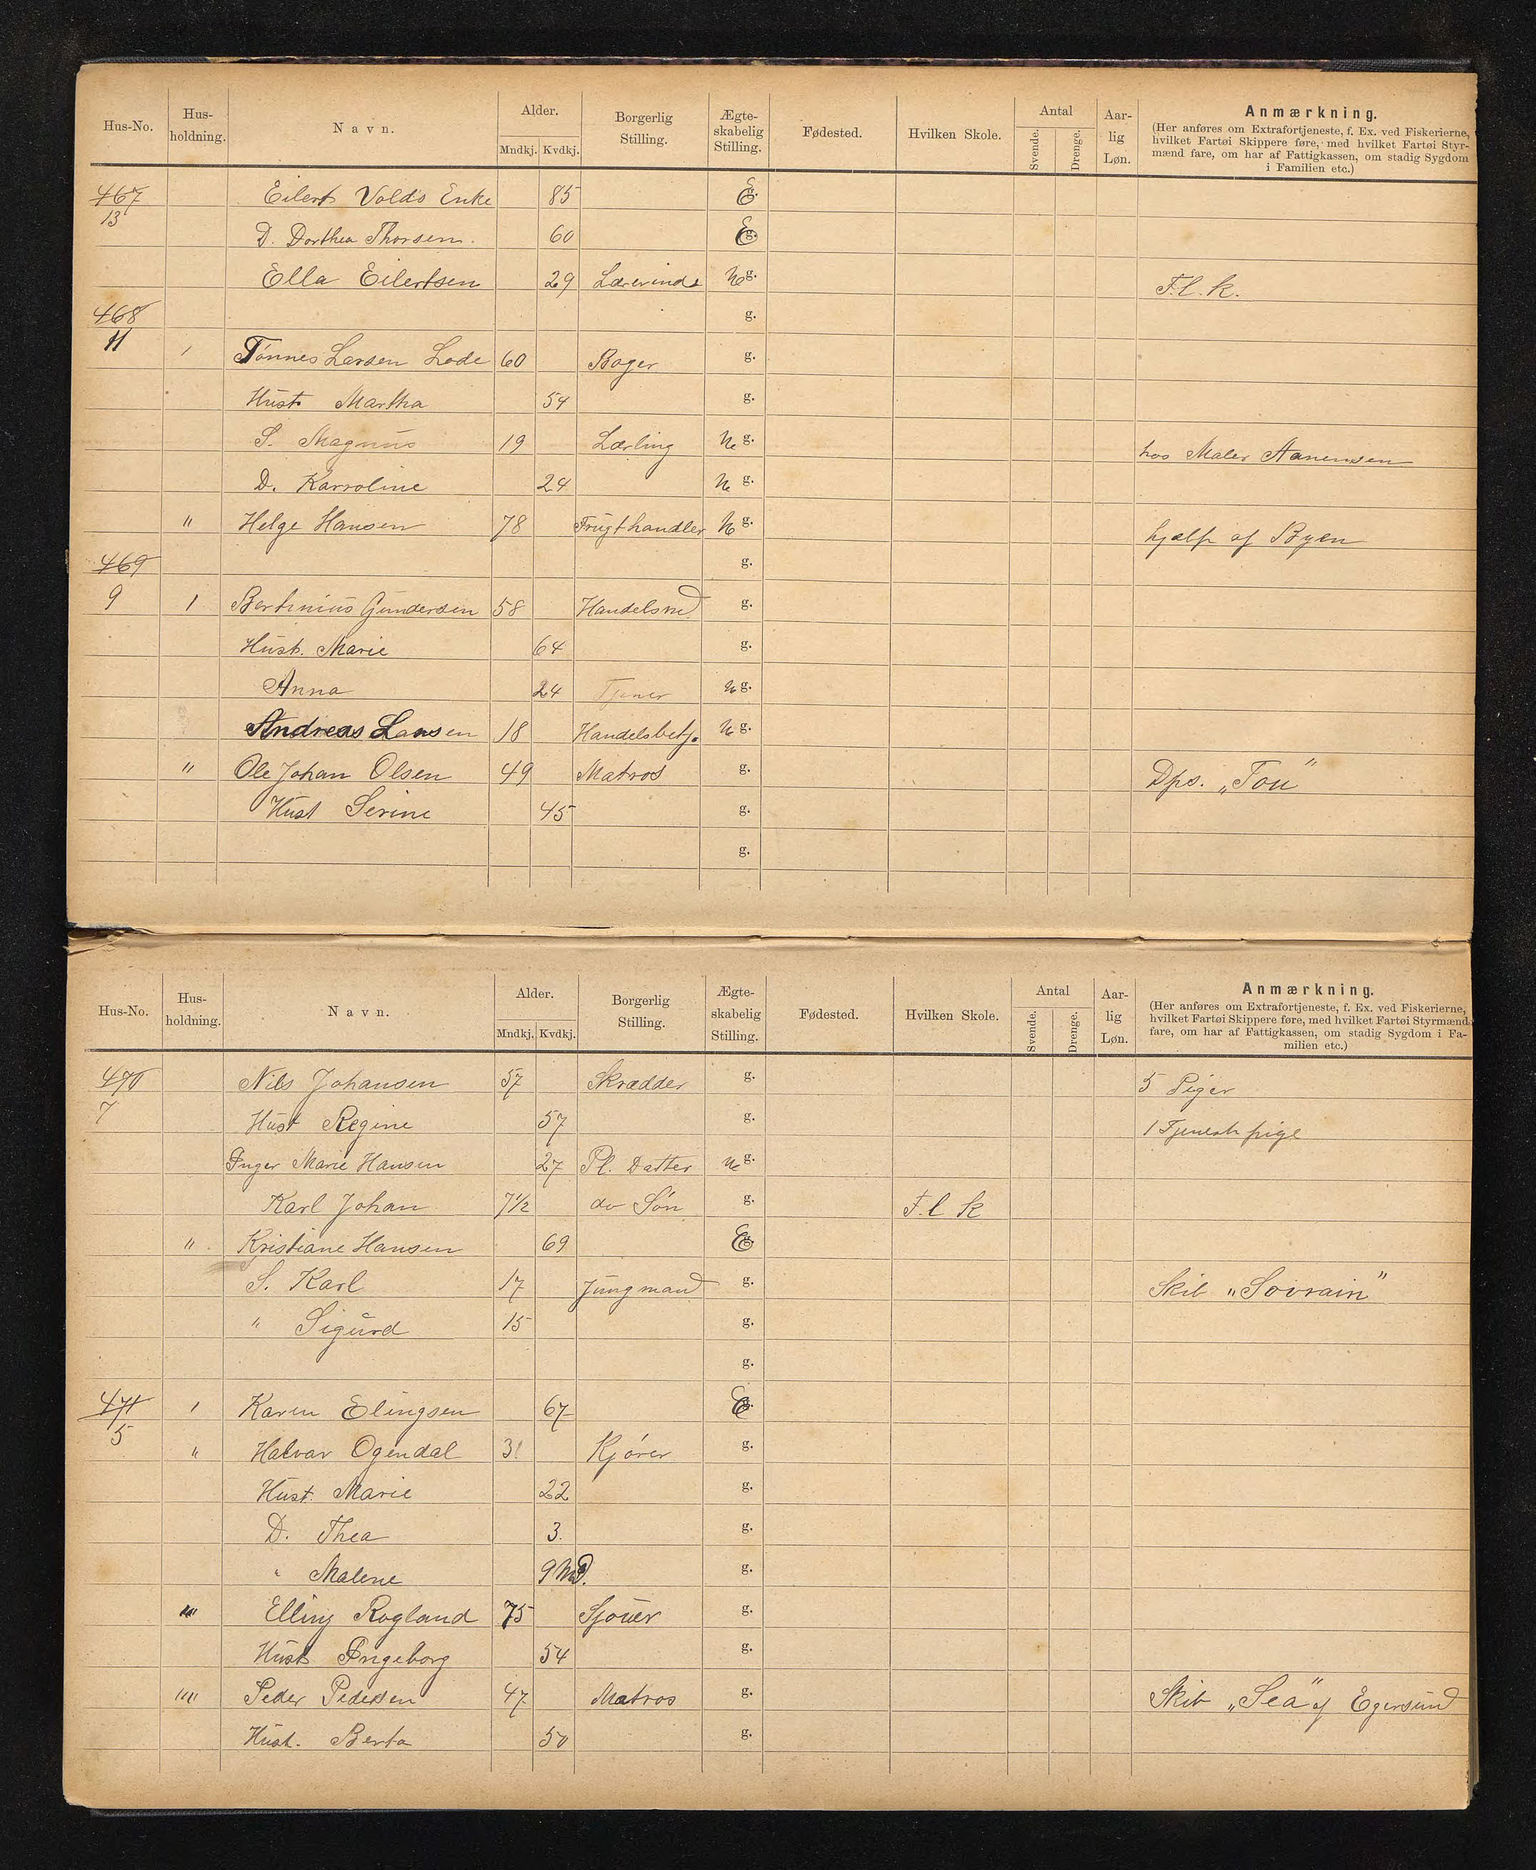 Hus-No. Hus-holdning. Navn. Alder. Mndkj. Kvdkj. Borgerlig Stilling. Ægte-skabelig Stilling. Fødested. Hvilken Skole. Antal Svende. Drenge. Aar-lig Løn. Anmærkning.
(Her anføres om Extrafortjeneste, f. Ex. ved Fiskerierne,
hvilket Fartøi Skippere føre, med hvilket Fartøi Styr-
mænd fare, om har af Fattigkassen, om stadig Sygdom
i Familien etc.)
467 Eilert Volds Enke 85 E g.
13 D. Dorthea Thorsen. 60 E g.
Ella Eilertsen 29 Lærerinde N g. F.l.k.
468 g.
11 1 Tønnes Larsen Lode 60 Bager g.
Hust. Martha 54 g.
S. Magnus 19 Lærling N g. hos Maler Aanensen
D. Karroline 24 N g.
" Helge Hansen 78 Frugthandler N g. hjælp af Byen
469 g.
9 1 Bertinius Gundersen 58 Handelsmd g.
Hust. Marie 64 g.
Anna 24 Tjener N g.
Andreas Larsen 18 Handelsbetj. N g.
" Ole Johan Olsen 49 Matros g. Dps. „Tou"
Hust Serine 45 g.
g.
Hus-No. Hus-holdning. Navn. Alder. Mndkj. Kvdkj. Borgerlig Stilling. Ægte-skabelig Stilling. Fødested. Hvilken Skole. Antal Svende. Drenge. Aar-lig Løn. Anmærkning.
(Her anføres om Extrafortjeneste, f. Ex. ved Fiskerierne,
hvilket Fartøi Skippere føre, med hvilket Fartøi Styrmænd
fare, om har af Fattigkassen, om stadig Sygdom i Fa-
milien etc.)
470 Nils Johansen 57 Skrædder g. 5 Piger
7 Hust Regine 57 g. 1 Tjenestepige
Inger Marie Hansen 27 Pl. Datter N g.
Karl Johan 7 1/2 do Søn g. F.l k
" Kristiane Hansen 69 E g.
S. Karl 17 Jungmand g. Skib „Sovrain"
" Sigurd 15 g.
g.
471 1 Karen Elingsen 67 E g.
5 " Halvar Ogendal 31 Kjører g.
Hust. Marie 22 g.
D. Thea 3. g.
" Malene 9 Md. g.
''' Elling Rogland 75 Sjouer g.
Hust Ingeborg 54 g.
'''' Peder Pedersen 47 Matros g. Skib „Sea" af Egersund
Hust. Berta 50 g.